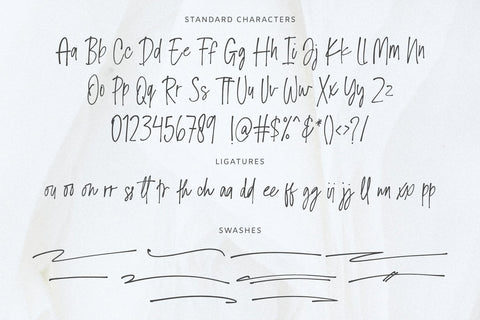 STANDARD CHARACTERS
Aa Bb Cc Dd Ee Ff Gg Hh Ii Jj Kk Ll Mm Nn
Oo Pp Qq Rr Ss Tt Uu Vv Ww Xx Yy Zz
0123456789 !@#$%^&*()<>?/
LIGATURES
ou oo on rr ss tt tr th ch aa dd ee ff gg ii jj ll nn xp pp
SWASHES